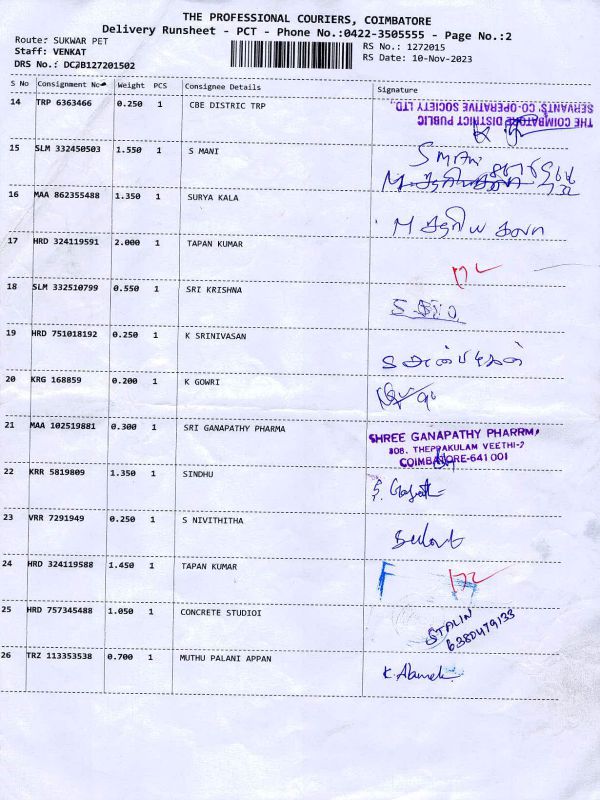 THE PROFESSIONAL COURIERS, COIMBATORE
Delivery Runsheet - PCT - Phone No.:0422-3505555 - Page No.:2
Route: SUKWAR PET
RS No.: 1272015
Staff: VENKAT
RS Date: 10-Nov-2023
DRS No.: DCAB127201502
S No Consignment No Weight PCS Consignee Details Signature
14 TRP 6363466 0.250 1 CBE DISTRIC TRP
THE COIMBATORE DISTRICT PUBLIC
SERVANTS CO-OPERATIVE SOCIETY LTD
15 SLM 332450503 1.550 1 S MANI
S Mani
16 MAA 862355488 1.350 1 SURYA KALA
17 HRD 324119591 2.000 1 TAPAN KUMAR
18 SLM 332510799 0.550 1 SRI KRISHNA
19 HRD 751018192 0.250 1 K SRINIVASAN
20 KRG 168859 0.200 1 K GOWRI
21 MAA 102519881 0.300 1 SRI GANAPATHY PHARMA
SHREE GANAPATHY PHARRMA
808, THEPPAKULAM VEETHI-2
COIMBATORE-641 001
22 KRR 5819809 1.350 1 SINDHU
23 VRR 7291949 0.250 1 S NIVITHITHA
24 HRD 324119588 1.450 1 TAPAN KUMAR
F
25 HRD 757345488 1.050 1 CONCRETE STUDIOI
STALIN
6380479133
26 TRZ 113353538 0.700 1 MUTHU PALANI APPAN